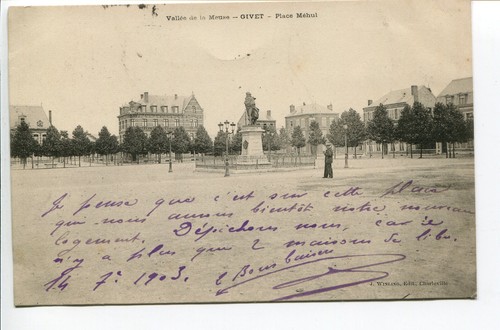 Vallée de la Meuse – GIVET – Place Méhul
Je pense que c'est sur cette place
que nous aurons bientôt notre nouveau
logement. Dépêchons nous, car je
n'y a plus que 2 maisons de libre.
14 7e 1903.
J. WINLING, Edit., Charleville